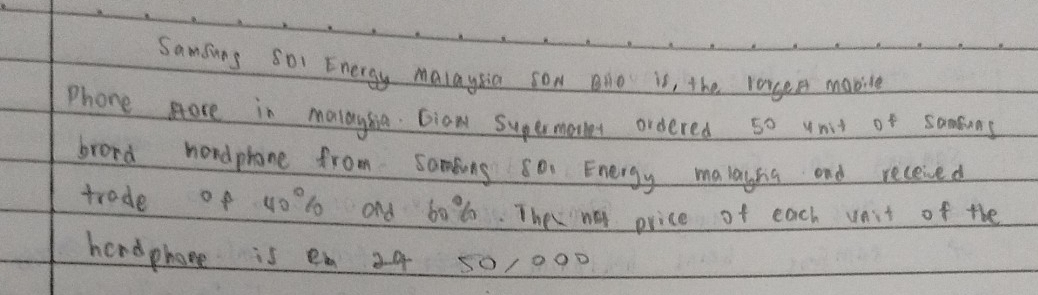 Samsung SDI Energy malaysia SDN BHD is, the largest mobile
Phone store in malaysia. Giant Supermarket ordered 50 unit of Samsung
brand handphone from Samsung SDI Energy malaysia and received
trade of 40% and 60%. The net price of each unit of the
handphone is 50,000